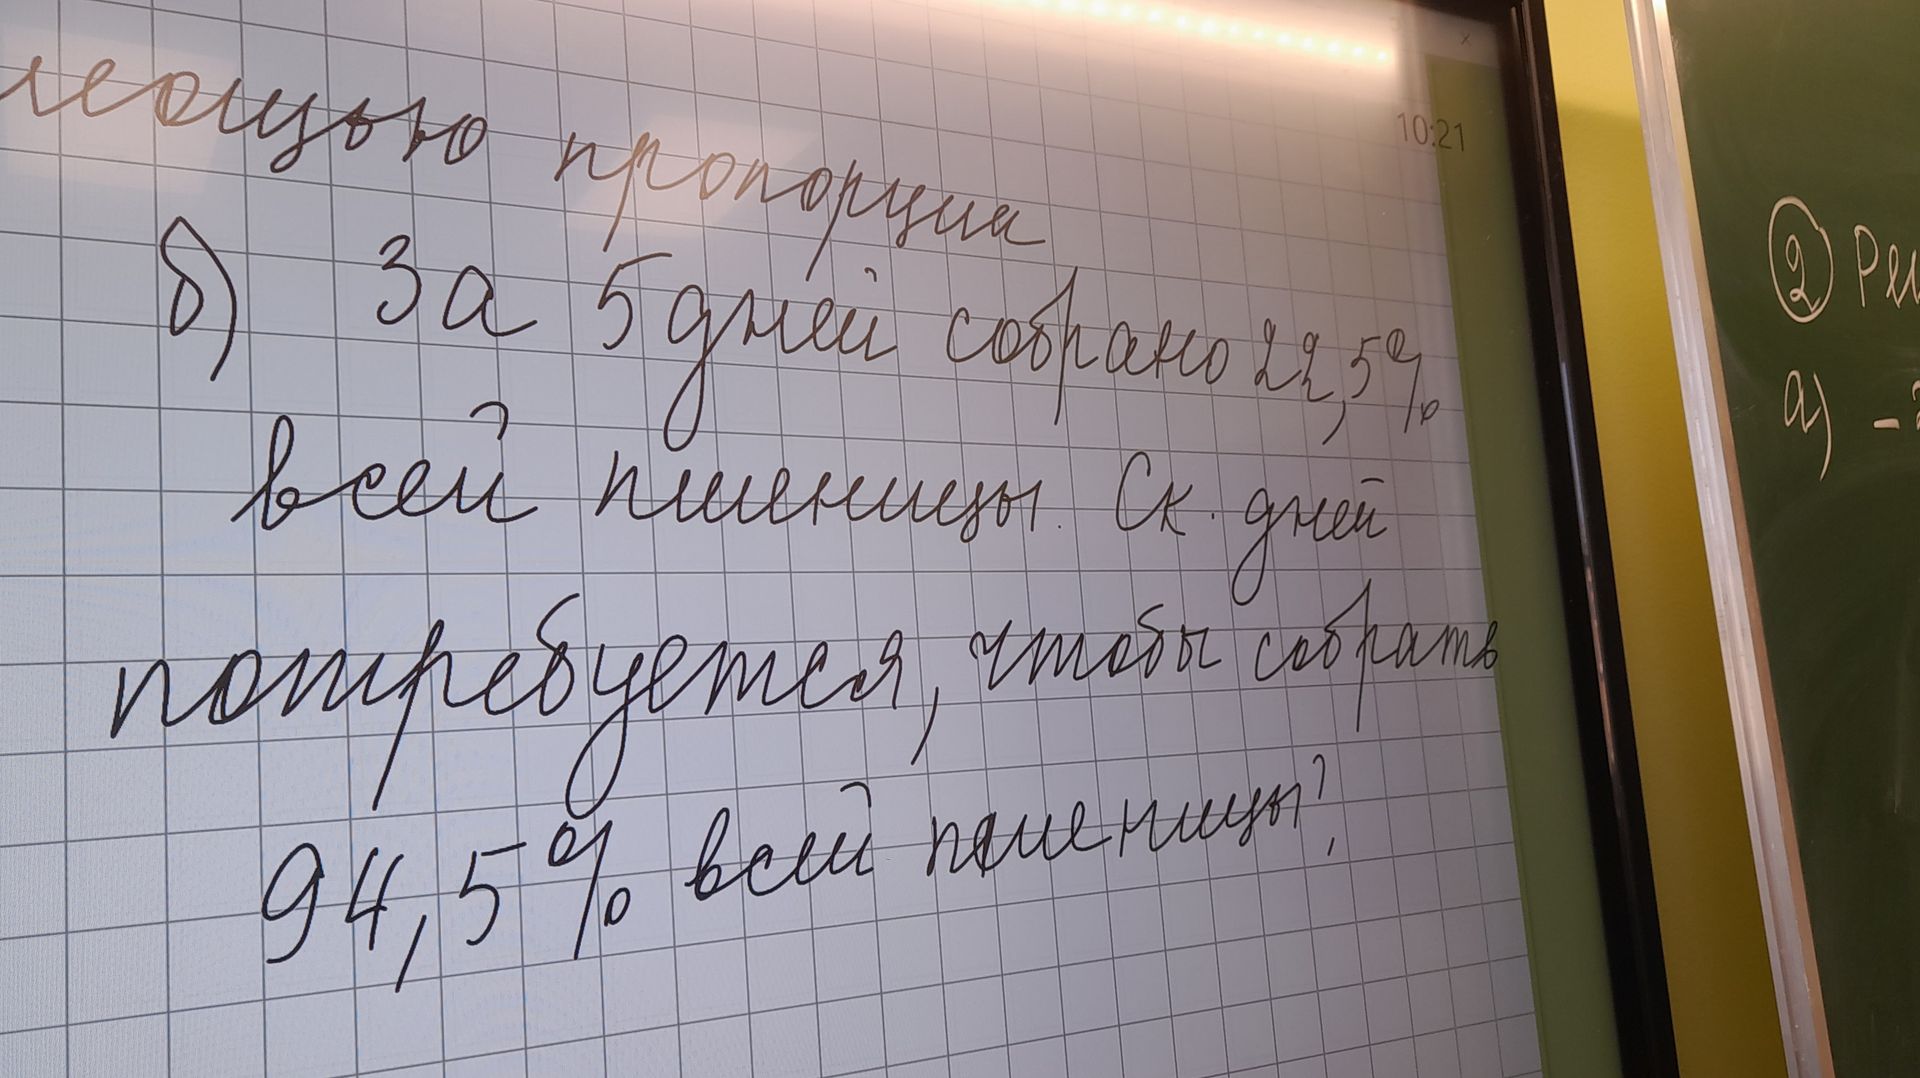 пропорции
б) За 5 дней собрано 22,5%
всей пшеницы. Ск. дней
потребуется, чтобы собрать
94,5% всей пшеницы?
10:21
2
а) -